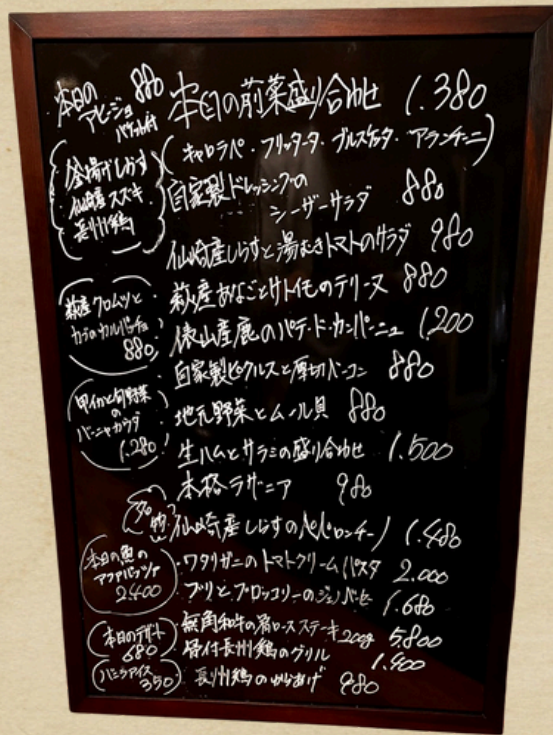 本日の 880
アヒージョ
バケット付
釜揚げしらす
仙崎産スズキ
長州鶏
萩産クロムツと
カブのカルパッチョ
880
甲イカと旬野菜
の
バーニャカウダ
1.280
本日の魚の
アクアパッツァ
2.400
本日のデザート
680
バニラアイス
350
本日の前菜盛り合わせ 1.380
(キャロラペ・フリッタータ・ブルスケッタ・アランチーニ)
自家製ドレッシングの
シーザーサラダ 880
仙崎産しらすと湯むきトマトのサラダ 980
萩産あなごとサトイモのテリーヌ 880
俵山産鹿のパテ・ド・カンパーニュ 1.200
自家製ピクルスと厚切ベーコン 880
地元野菜とムール貝 880
生ハムとサラミの盛り合わせ 1.500
本格ラザニア 980
仙崎産しらすのペペロンチーノ 1.480
・ワタリガニのトマトクリームパスタ 2.000
・ブリとブロッコリーのジェノバーゼ 1.680
・無角和牛の肩ロースステーキ200g 5.800
・骨付長州鶏のグリル 1.400
・長州鶏のからあげ 980